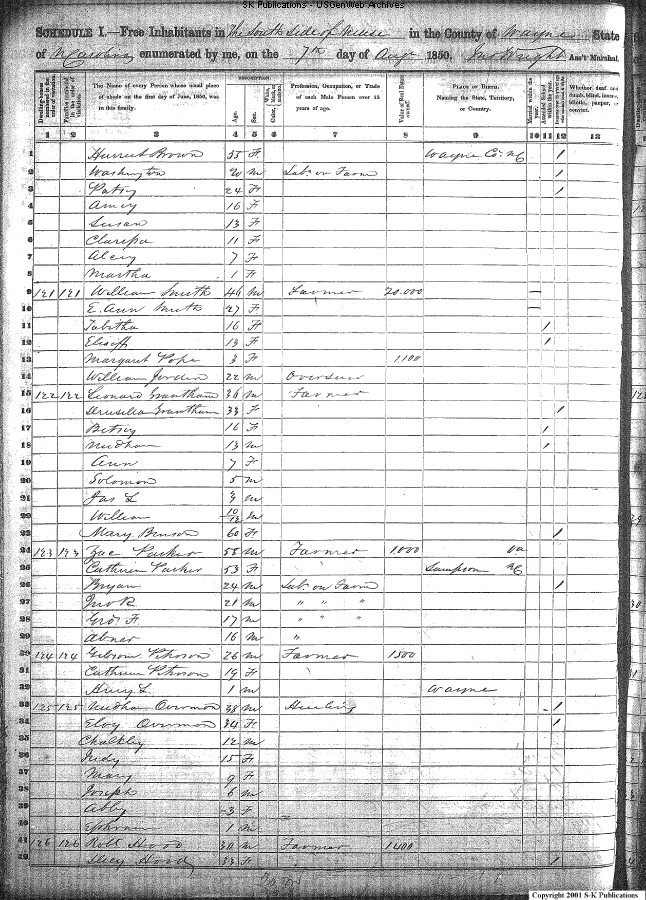 SK Publications - USGenWeb Archives
SCHEDULE I.—Free Inhabitants in The South Side of Neuse in the County of Wayne State
of N Carolina enumerated by me, on the 7th day of Augt 1850. Jno Wright Ass't Marshal.
DESCRIPTION.
Dwelling-houses numbered in the order of visitation. Families numbered in the order of visitation. The Name of every Person whose usual place of abode on the first day of June, 1850, was in this family. Age. Sex. Color, White, black, or mulatto. Profession, Occupation, or Trade of each Male Person over 15 years of age. Value of Real Estate owned. PLACE OF BIRTH. Naming the State, Territory, or Country. Married within the year. Attended School within the year. Whether deaf and dumb, blind, insane, idiotic, pauper, or convict.
1 2 3 4 5 6 7 8 9 10 11 12 13
1 Harriet Brown 55 F Wayne Co. NC /
2 Washington 20 M Lab. on Farm /
3 Patsy 24 F /
4 Amey 16 F
5 Susan 13 F
6 Clarissa 11 F
7 Alcey 7 F
8 Martha 1 F
9 121 121 William Smith 46 M Farmer 20.000 —
10 E. Ann Smith 27 F —
11 Tabitha 16 F /
12 13 F /
13 Margaret Pope 3 F 1,100
14 William Jorden 22 M Overseer
15 122 122 Leonard Grantham 36 M Farmer
16 Grantham 33 F /
17 Betsy 16 F /
18 Needham 13 M /
19 Ann 7 F
20 Solomon 5 M
21 Jas L M
22 William 10/12 M
23 Mary Benson 60 F /
24 123 123 Zac Parker 55 M Farmer 1.000 Va
25 Catherine Parker 53 F Sampson NC
26 Bryan 24 M Lab. on Farm /
27 Jno R 21 M " " "
28 Geo F. 17 M " " "
29 Abner 16 M "
30 124 124 Gibson Peterson 26 M Farmer 1500
31 Catherine Peterson 19 F
32 L. 1 M Wayne
33 125 125 Needham 38 M /
34 34 F /
35 Chalkley 12 M
36 15 F
37 Mary 9 F
38 Joseph 6 M
39 Abby 3 F
40 Ephraim 1 M
41 126 126 Robt Hood 30 M Farmer 1400
42 Hood 33 F /
Copyright 2001 S-K Publications